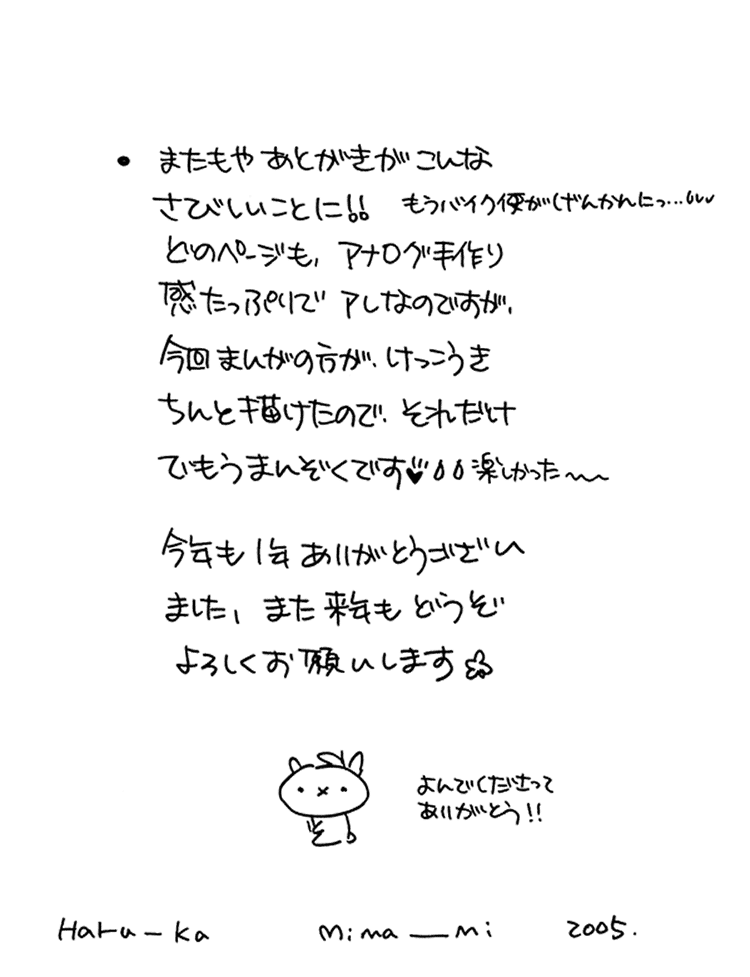 • またもや あとがきが こんな
さびしいことに!! もうバイク便がげんかんにっ…
どのページも、アナログ手作り
感たっぷりで アレなのですが、
今回まんがの方が、けっこうき
ちんと描けたので、それだけ
でもうまんぞくです♥ 楽しかった〜〜
今年も 1年 ありがとうござい
ました、また来年も どうぞ
よろしくお願いします
よんでくださって
ありがとう!!
Haru-ka Mina_mi 2005.